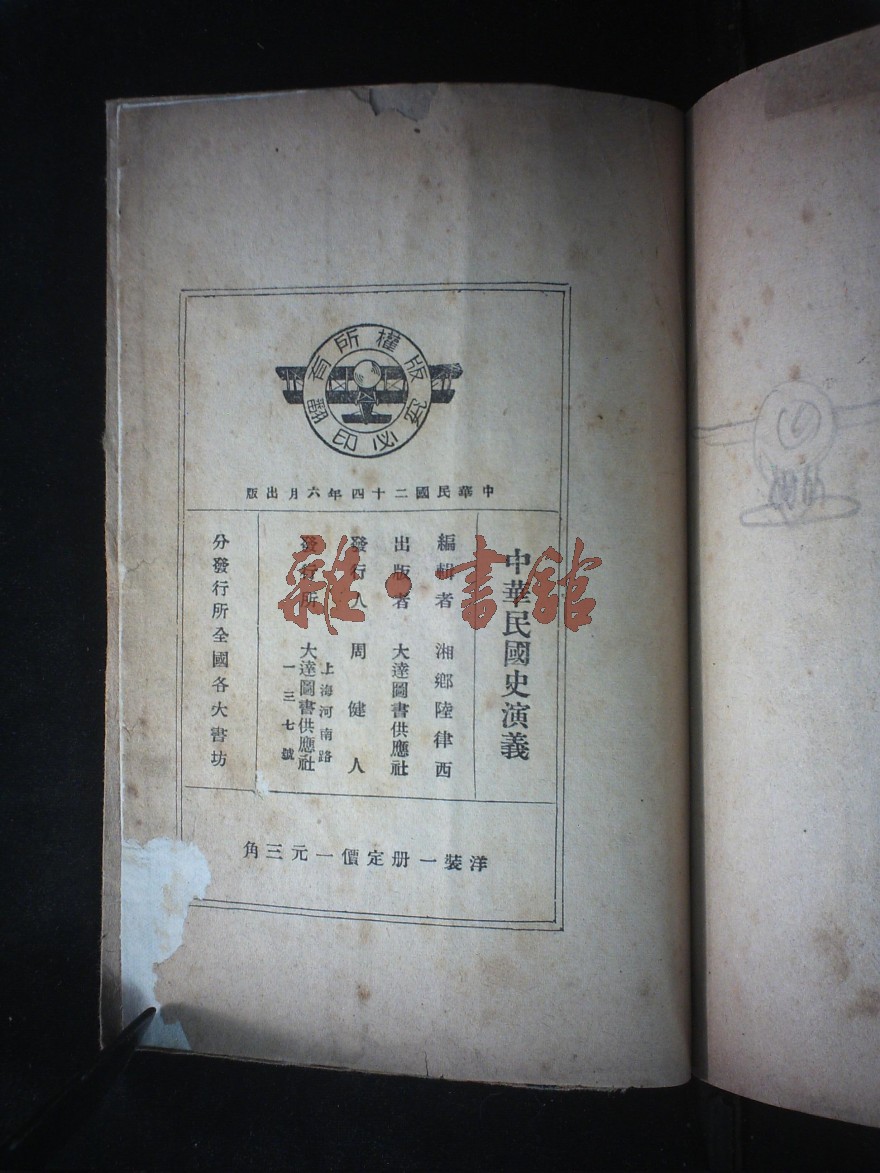 版權所有
翻印必究
中華民國二十四年六月出版
中華民國史演義
編輯者 湘鄉陸律西
出版者 大達圖書供應社
發行人 周健人
發行所 上海河南路一三七號
大達圖書供應社
分發行所全國各大書坊
洋裝一册定價一元三角
雜·書館